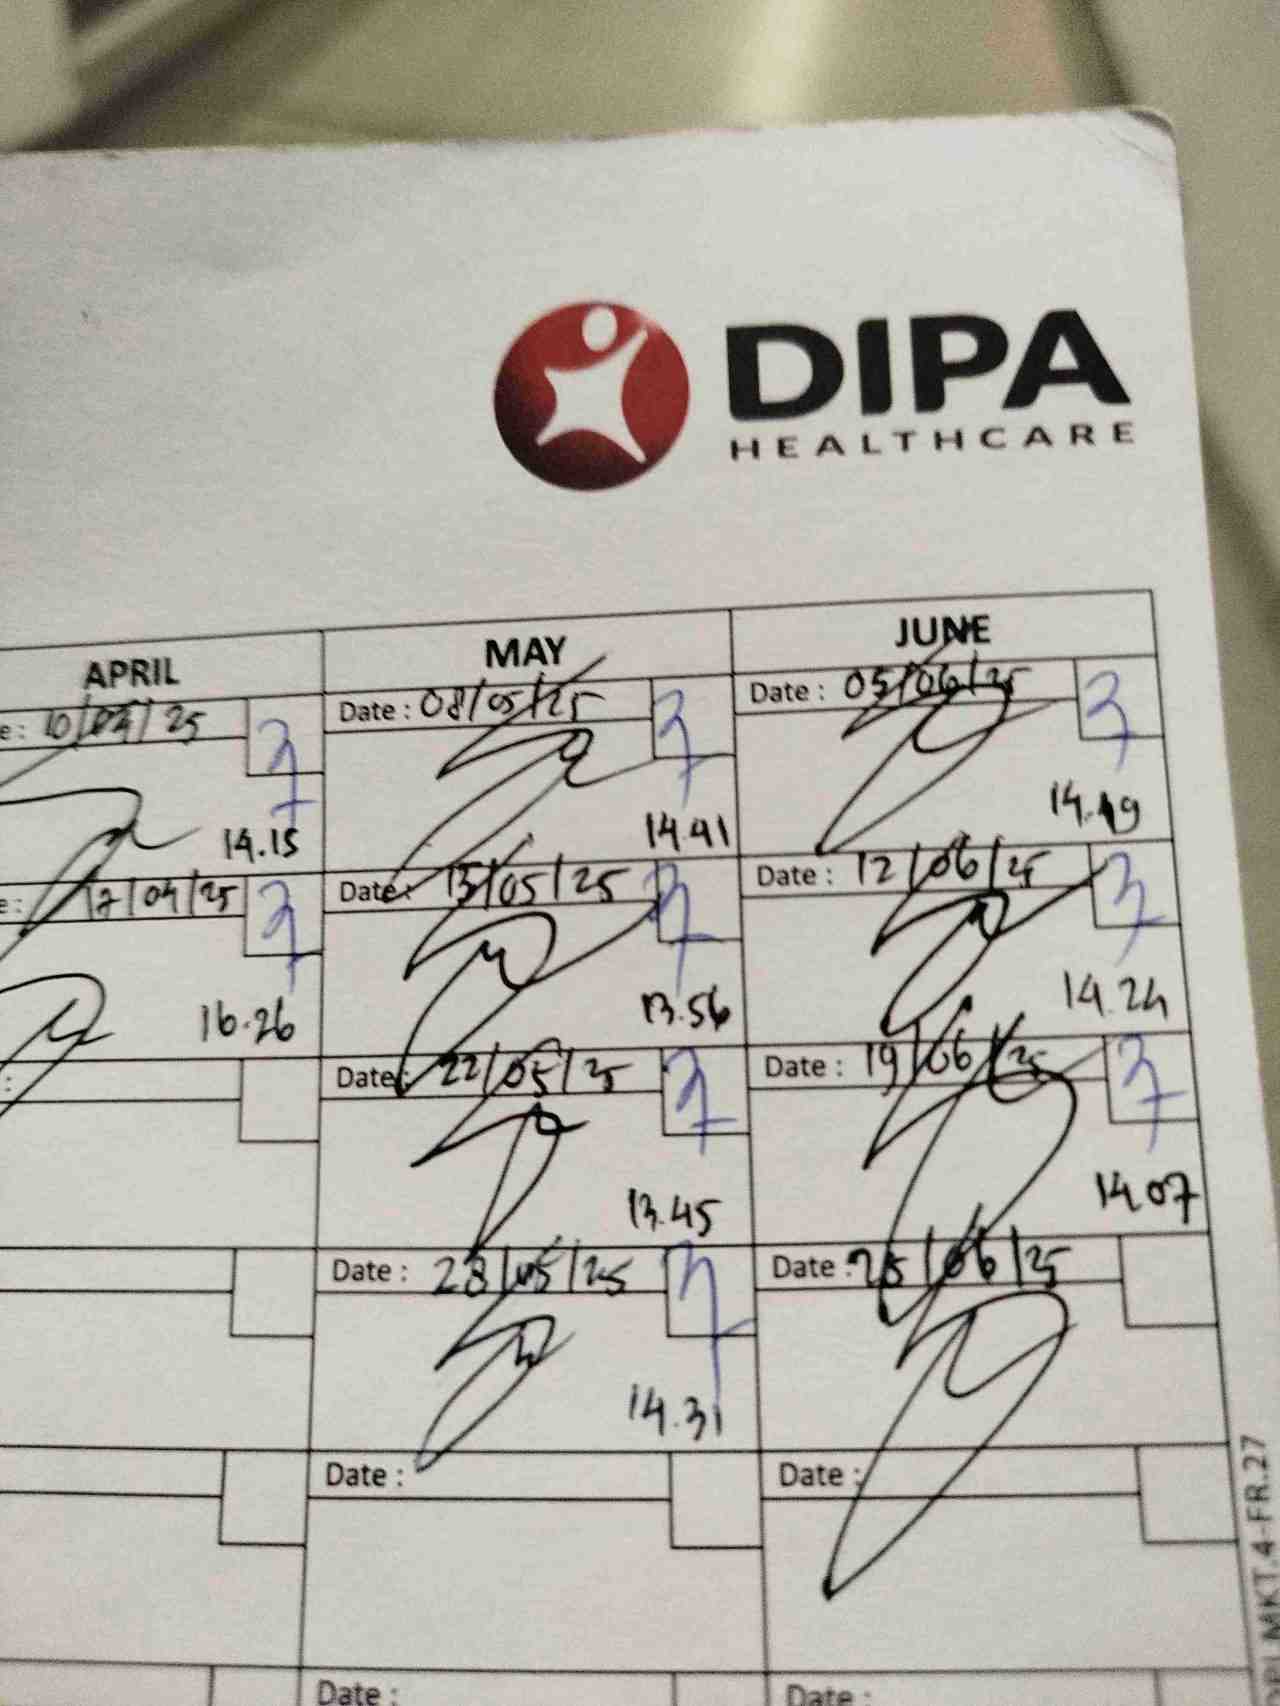 DIPA
HEALTHCARE
APRIL MAY JUNE
e: 10/04/25 Date : 08/05/25 Date : 05/06/25
14.15 14.41 14.19
e: 17/04/25 Date : 15/05/25 Date : 12/06/25
16.26 13.56 14.24
: Date : 22/05/25 Date : 19/06/25
13.45 14.07
Date : 28/05/25 Date : 25/06/25
14.31
Date : Date :
Date : Date :
MKT.4-FR.27